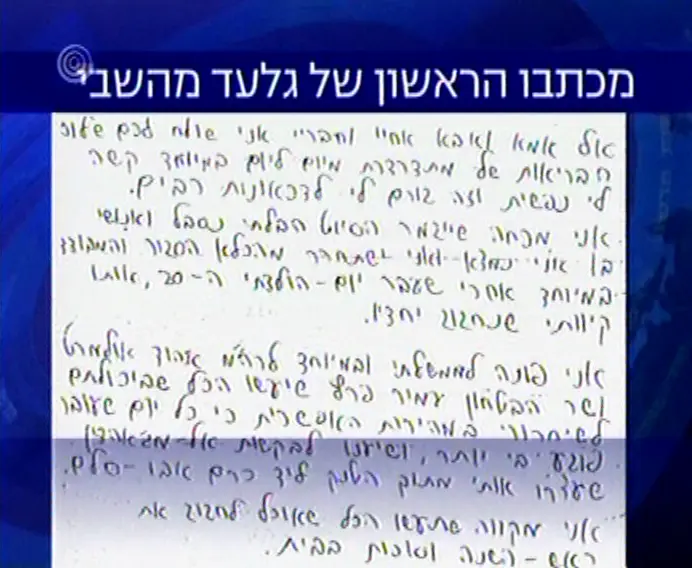 מכתבו הראשון של גלעד מהשבי
אל אמא ואבא אחיי וחבריי אני שולח לכם שלום
הבריאות שלי מתדרדרת מיום ליום במיוחד קשה
לי נפשית וזה גורם לי לדכאונות רבים.
אני מכחה שייגמר הסיוט הבלתי נסבל ואנושי
בו אני נמצא ואני ישתחרר מהכלא הסגור והמבודד
במיוחד אחרי שעבר יום-הולדתי ה-20, אותו
קיוותי שנחגוג יחדיו.
אני פונה לממשלתי ובמיוחד לרה"מ אהוד אולמרט
ושר הבטחון עמיר פרץ שיעשו הכל שביכולתם
לשיחרורי במהירות האפשרית כי כל יום שעובר
פוגע בי יותר, ושיענו לבקשות אל-מג'אהדין
שעצרו אותי מתוך הטנק ליד כרם אבו-סלם.
אני מקווה שתעשו הכל שאוכל לחגוג את
ראש-השנה וסוכות בבית.